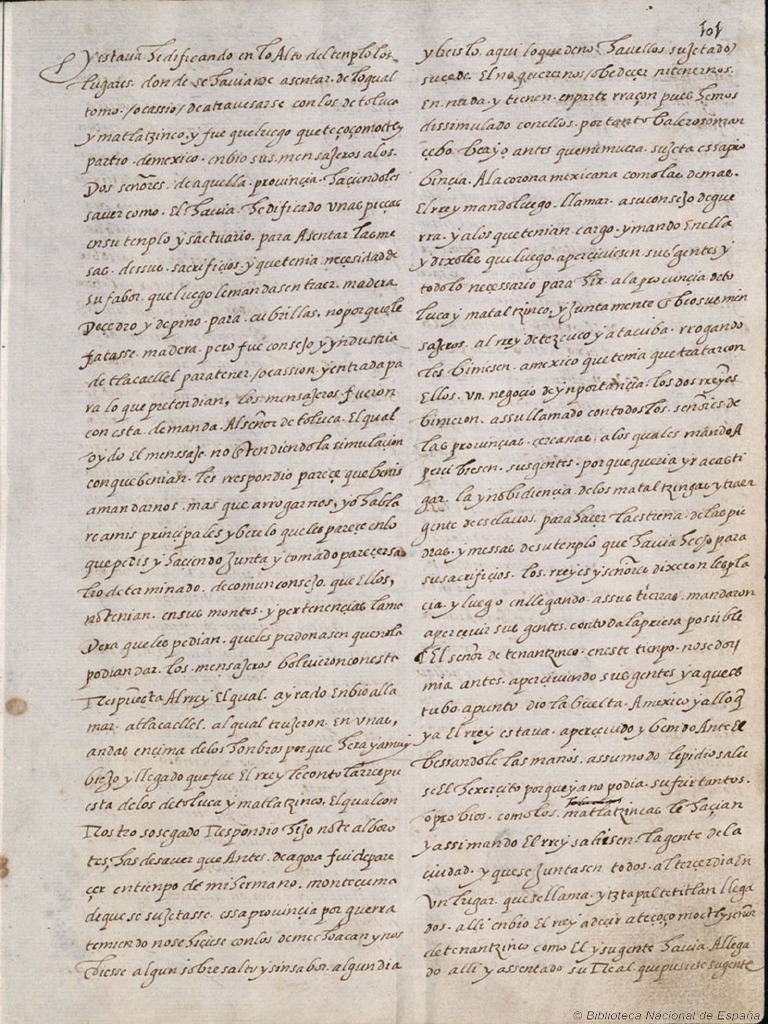 101
y estaua hedificando en lo Alto del tenplo los
lugares. donde se hauian de asentar. de lo qual
tomo. /ocassio/ de atrauesarse con los de toluca
y matlatzinco. y fue que luego que teçoçomoctly
partio. de mexico. enbio sus mensajeros a los.
Dos señores. de aquella. provinçia. haçiendoles
sauer como. El hauia. hedificado vnas pieças
en su templo y sactuario. para Asentar las me
sas. de sus. sacrifiçios. y que tenia. neçesidad de
su fabor. que luego le mandasen traer. madera.
De çedro y de pino. para. cubrillas. no porque le
fatasse. madera. pero fue consejo y yndustria
de tlacaellel para tener /ocassion. y entrada pa
ra lo que pretendian, los mensajeros fueron
con esta. demanda. Al señor de toluca. El qual
oydo El mensaje. no Entendiendo la simulaçion
con que benian. les rrespondio pareçe que benis
a mandarnos. mas que a rrogarnos, yo habla
re a mis prinçipales y bere lo que les pareçe en lo
que pedis y haçiendo Junta y tomado pareçer sa
lio determinado. de comun consejo. que Ellos,
no tenian. en sus montes. y pertenençias la ma
Dera que les pedian. que les perdonasen que no la
podian dar. los. mensajeros bolvieron con esta
Respuesta Al rrey El qual. ayrado Enbio a lla
mar. a tlacaellel. al qual trujeron. En vnas,
andas ençima de los honbros por que hera ya muy
biejo y llegado que fue El rrey le conto la rrepu
esta de los de toluca y matlatzinco. El qual con
Rostro sosegado Respondio hijo no te albоро
tes, has de sauer que Antes. de agora fui de pare
çer en tienpo de mi hermano. monteçuma
de que se sujetasse. essa provinçia por guerra
temiendo no se hiçiese con los de mechoacan y nos
diesse algun sobresalto y sinsabor. algun dia
y beislo. aqui lo que de no. hauellos. sujetado
suçede. El no querernos /obedeçer ni tenernos.
En nada. y tienen. en parte rraçon pues hemos
dissimulado con ellos. por tanto baleroso man
çebo. bea yo antes que me muera. sujeta essa pro
binçia. A la corona mexicana como las demas.
El rrey mando luego. llamar. a su consejo de gue
rra. y a los que tenian. cargo. y mando En ella
y dixoles. que luego. aperçiuiesen. sus gentes y
todo lo neçessario para hir. a la provinçia de to
luca y matalzinco, y Juntamente Enbio sus men
sajeros. al rrey de tezcuco y a tacuba. rrogando
les biniesen. a mexico que tenia que tratar con
Ellos. vn. negoçio de ynportançia. los dos rreyes
binieron. a su llamado con todos los. señores de
las provinçias. çercanas. a los quales mando A
perçibiesen. sus gentes. porque queria yr a casti
gar. la ynobidiençia. de los matalzingas y traer
gente de esclauos. para haçer la estrena. de las pie
dras. y messas de su templo que hauia hecho para
sus sacrifiçios. los. rreyes y señores dixeron les pla
çia. y luego en llegando. a sus tierras. mandaron
aperçeuir sus gentes. con toda la priesa possible
El señor de tenantzinco. en este tienpo. no se dor
mia. antes. aperçiuiendo sus gentes y a que es
tubo. a punto dio la buelta. A mexico y allo q̃
ya El rrey estaua. aperçeuido y bendo Ante El
bessandole las manos. a su modo le pidio salie
se El hexerçito porque ya no podia. sufrir tantos.
oprobios. como los. matlatzincas le haçian
y assi mando El rrey saliesen. la gente de la
çiudad. y que se Juntasen todos. al terçer dia En
Vn lugar. que se llama. ytztapaltetitlan llega
dos. alli enbio El rey a deçir a teçoçomoctly señor
de tenantzinco como El y su gente hauia Allega
do alli y assentado su Real. que pusiese su gente
© Biblioteca Nacional de España